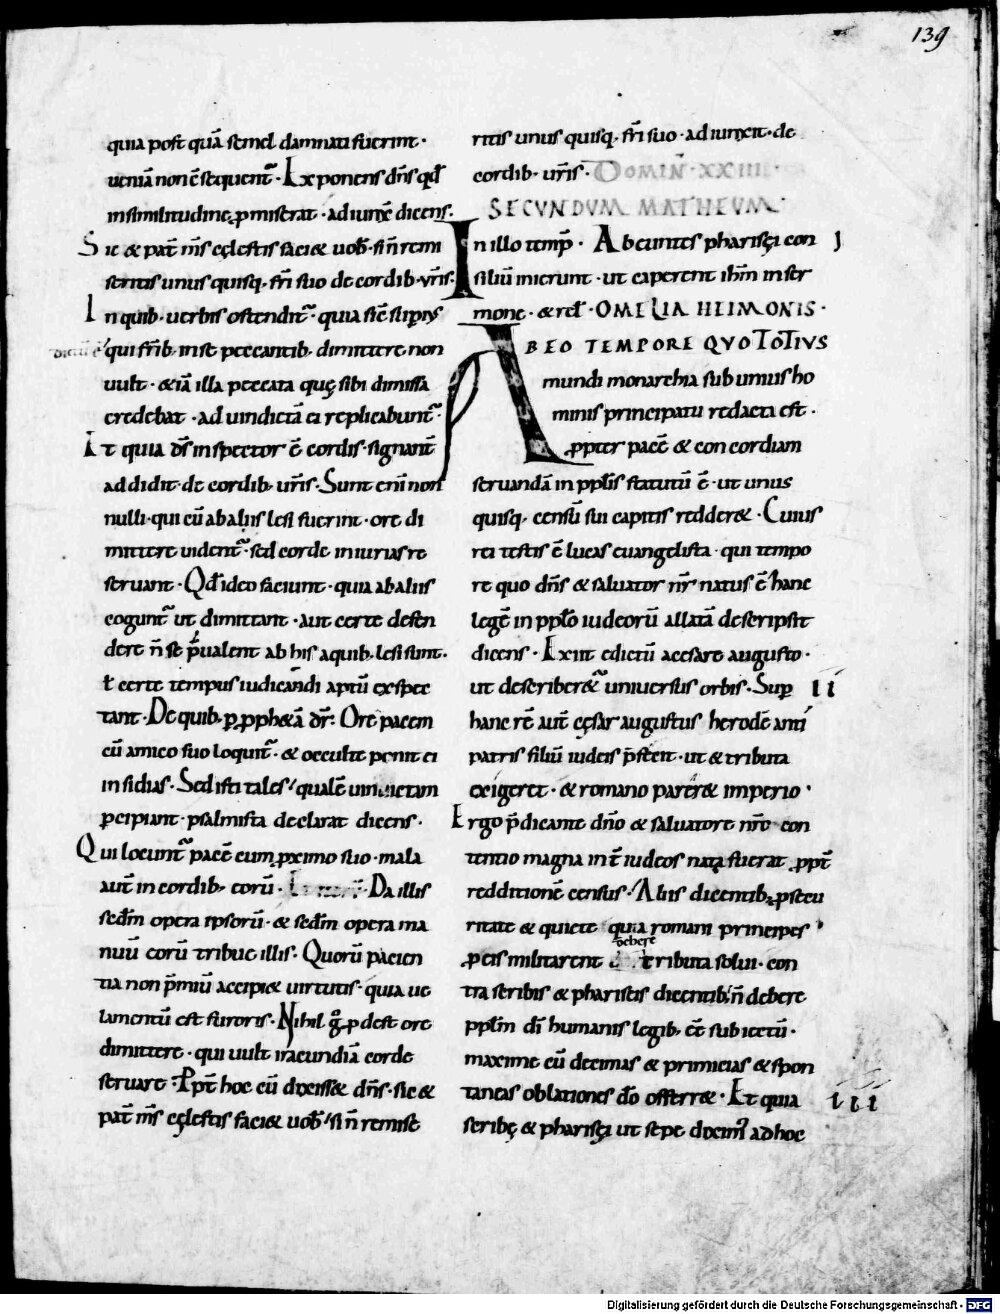 139
quia post quā semel damnati fuerint·
ueniā non ē sequent̄· Exponens dn̄s qd̄
in similitudine p̱miserat· adiunx̄ dicens·
Sic & pat̄ ms̄ cęlestis faci& uob̄· si n̄ remi
seritis unusquisq· fr̄i suo de cordib· vr̄is·
In quib· uerbis ostendit̄· quia sic̄ superiꝰ
dictū ē
qui fr̄ib· in se peccantib· dimittere non
uult· & iā illa peccata quę sibi dimissa
credebat· ad uindictā ei replicabunt̄·
Et quia ds̄ inspector ē cordis· signant̄
addidit· de cordib· ur̄is· Sunt eni non
nulli· qui cū ab aliis lesi fuerint· ore di
mittere uident̄· sed corde iniurias re
seruant· Qd̄ ideo faciunt· quia ab aliis
cogunt̄ ut dimittant· aut certe defen
dere n̄ se p̄ualent ab his a quib· lesi sunt·
ł certe tempus iudicandi aptū exspec
tant· De quib· ꝑ pph&ā dr̄· Ore pacem
cū amico suo loquit̄· & occulte ponit ei
insidias· Sed isti tales qualē uindictam
percipiant· psalmista declarat dicens·
Qui locunt̄ pacē cum ꝓximo suo· mala
aut̄ in cordib· eorū· Da illis
secdm̄ opera ipsorū· & secdm̄ opera ma
nuū eorū tribue illis· Quorū pacien
tia non p̄miū accipi& uirtutis· quia ue
lamentū est furoris· Nihil gͦ ꝓdest ore
dimittere· qui uult iracundiā corde
seruare· Ppt̄ hoc cū dixiss& dn̄s· sic &
pat̄ ms̄ cęlestis faci& uob̄· si n̄ remise
ritis unusquisq· fr̄i suo· adiunxit· de
cordib· ur̄is· DOMIN̄· XXIIII·
SECVNDVM MATHEVM·
In illo temp̄· Abeuntes pharisęi con
j
siliū inierunt· ut caperent ihm̄ in ser
mone· & rel̄· OMELIA HEIMONIS·
AB EO TEMPORE QVO TOTIVS
mundi monarchia sub unius ho
minis principatu redacta est·
ꝓpter pacē & concordiam
seruandā in ppl̄is statutū ē· ut unus
quisq· censū sui capitis redder&· Cuius
rei testis ē lucas euangelista· qui tempo
re quo dn̄s & saluator nr̄ natus ē hanc
legē in ppl̄o iudeorū allatā descripsit
dicens· Exiit edictū a cesare augusto·
ut describer&̄ uniuersus orbis· Sup
ii
hanc rē aut̄ cęsar augustus herodē anti
patris filiū iudeis p̄fecit· ut & tributa
exigeret· & romano parer& imperio·
Ergo p̄dicante dn̄o & saluatore nr̄o con
tentio magna int̄ iudeos nata fuerat ꝓpt̄
redditionē census· Aliis dicentib· ꝓ secu
ritate & quiete quia romani principes
debere
ꝓ eis militarent tributa solui· con
tra scribis & phariseis dicentib· n̄ debere
ppl̄m dī humanis legib· cē subiectū·
maxime cū decimas & primicias & spon
taneas oblationes dō offerre&· Et quia
iii
scribę & pharisęi ut sepe diximꝰ ad hoc
Digitalisierung gefördert durch die Deutsche Forschungsgemeinschaft - DFG